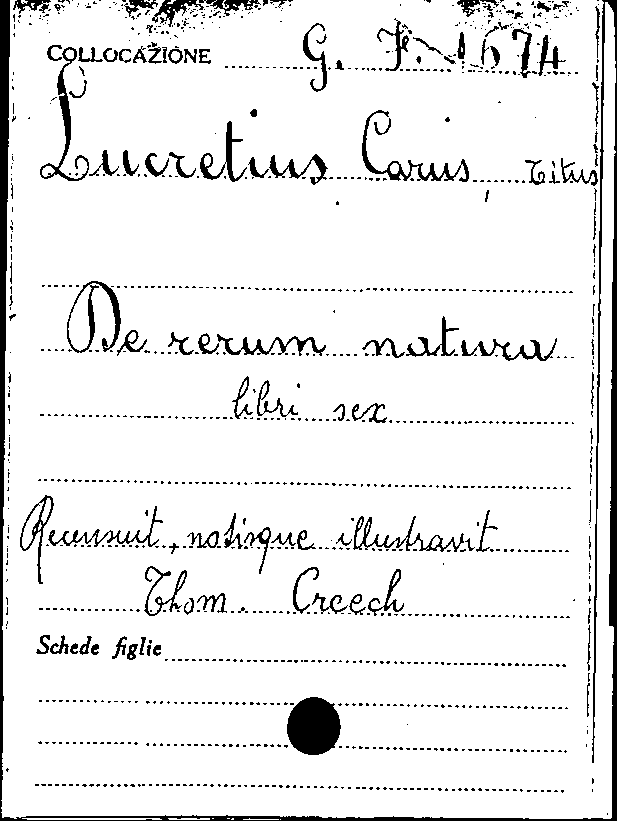 COLLOCAZIONE G. F. 1674
Lucretius Carus, Titus
De rerum natura
libri sex
Recensuit, notisque illustravit
Thom. Creech
Schede figlie